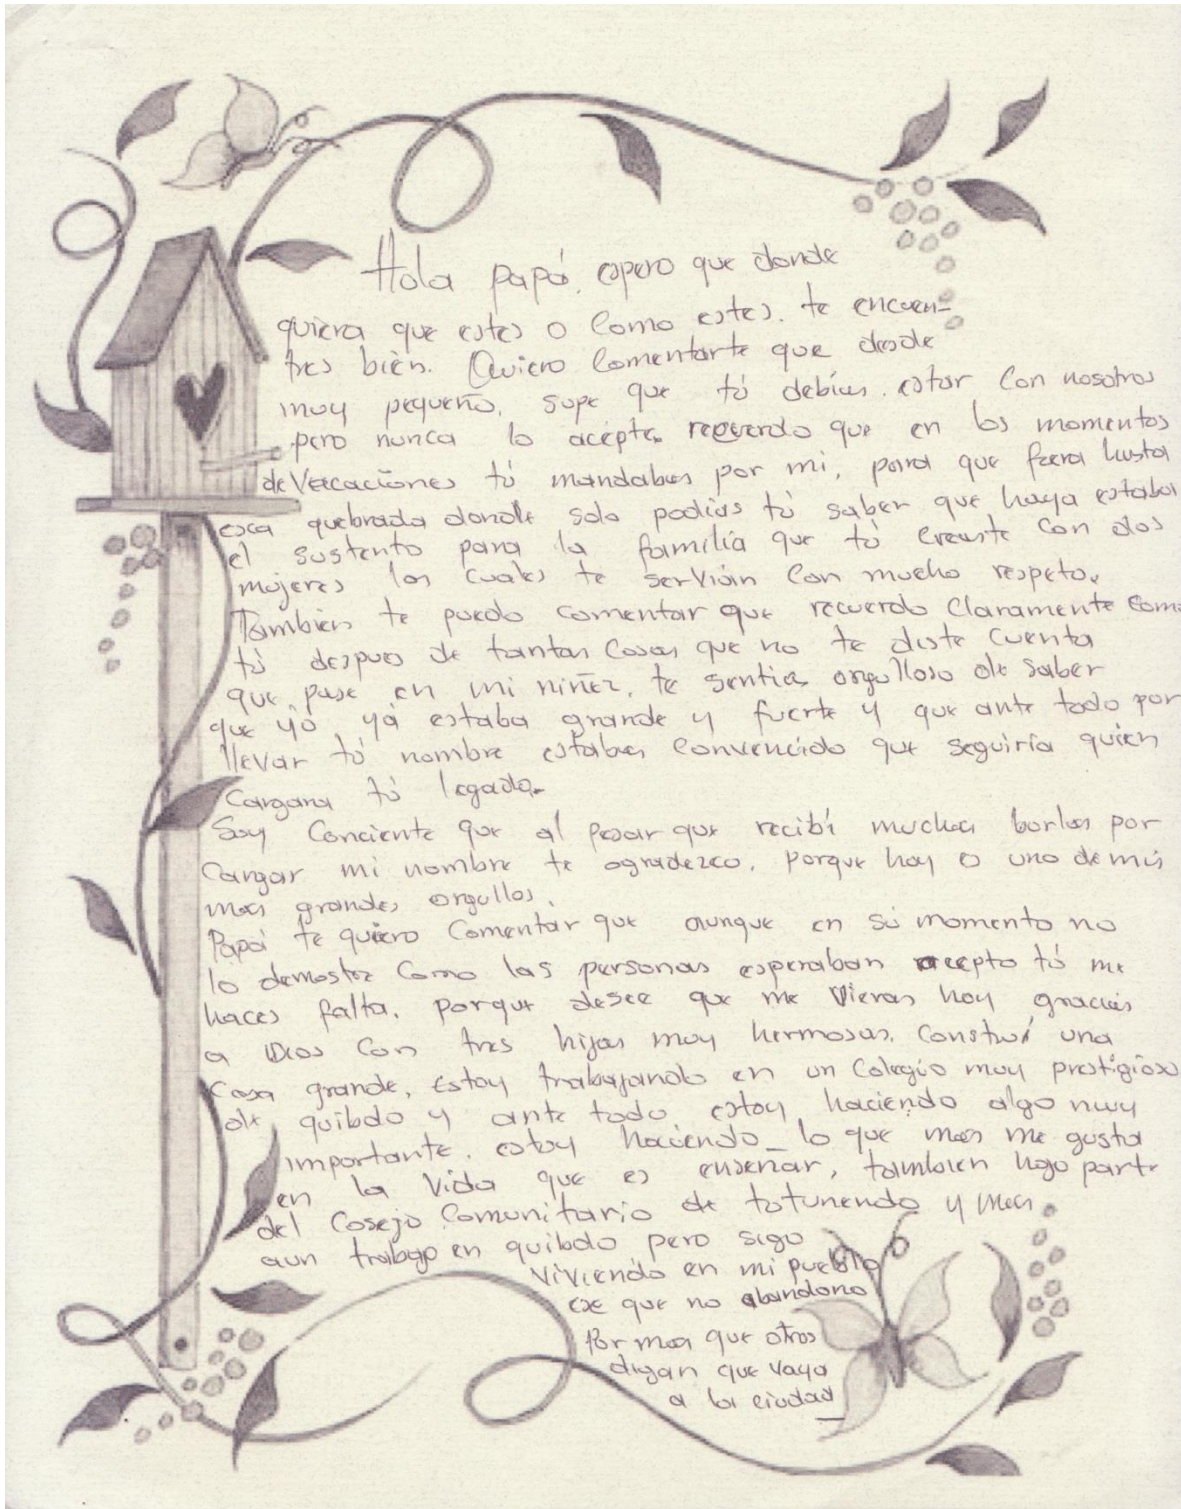 Hola papá, espero que donde
quiera que estes o como estes. te encuen-
tres bien. Quiero comentarte que desde
muy pequeño, supe que tú debías estar con nosotros
pero nunca lo acepte. recuerdo que en los momentos
de Vacaciones tú mandabas por mi, para que fuera hasta
esa quebrada donde solo podias tú saber que haya estaba
el sustento para la familia que tú creaste con dos
mujeres las cuales te servian con mucho respeto.
Tambien te puedo comentar que recuerdo claramente como
tú despues de tantas cosas que no te diste cuenta
que pase en mi niñez, te sentias orgulloso de saber
que yó yá estaba grande y fuerte y que ante todo por
llevar tú nombre estabas convencido que seguiría quien
Cargara tú legado.
Soy Conciente que al pesar que recibí muchas burlas por
Cargar mi nombre te agradezco, porque hoy es uno de mis
mas grandes orgullos.
Papá te quiero Comentar que aunque en su momento no
lo demostre como las personas esperaban acepto tú me
haces falta, porque desee que me vieras hoy gracias
a Dios con tres hijas muy hermosas. Construí una
Casa grande, Estoy trabajando en un Colegio muy prestigioso
de quibdo y ante todo estoy haciendo algo muy
importante. estoy haciendo lo que mas me gusta
en la Vida que es enseñar, tambien hago parte
del Cosejo Comunitario de tutunendo y mas
aun trabajo en quibdo pero sigo
viviendo en mi pueblo
ese que no abandono
Por mas que otros
digan que vaya
a la ciudad